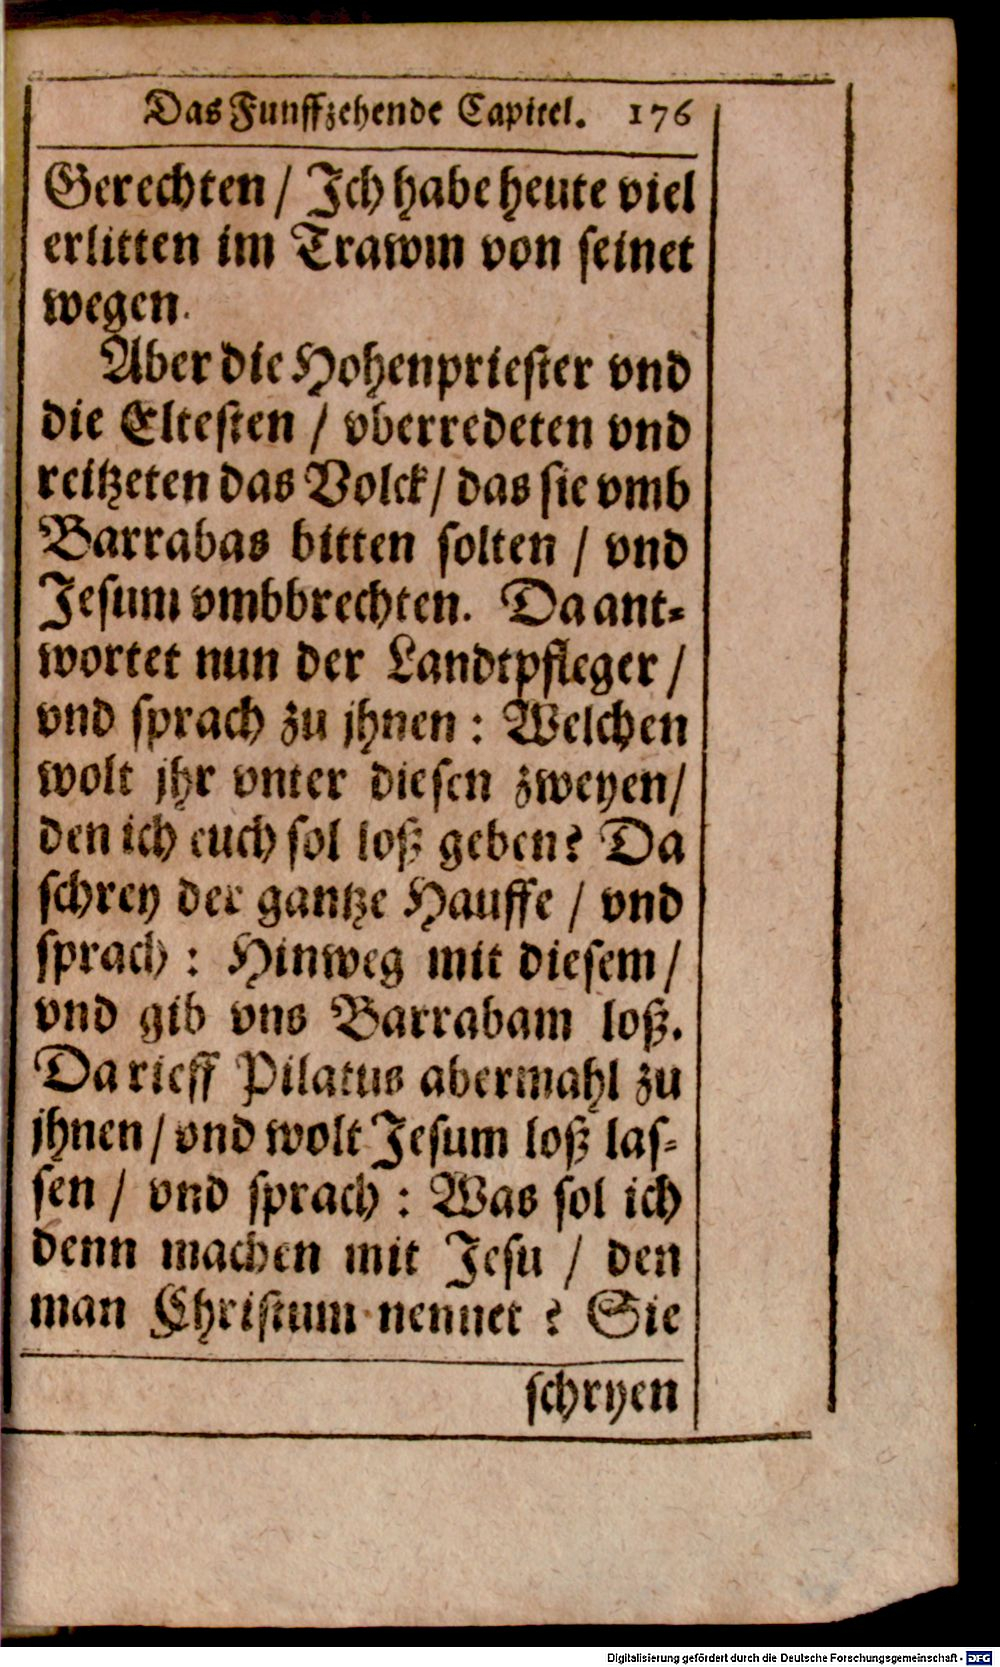 Das Funffzehende Capitel. 176
Gerechten / Ich habe heute viel
erlitten im Trawm von seinet
wegen.
Aber die Hohenpriester vnd
die Eltesten / vberredeten vnd
reitzeten das Volck / das sie vmb
Barrabas bitten solten / vnd
Jesum vmbbrechten. Da ant-
wortet nun der Landtpfleger /
vnd sprach zu jhnen : Welchen
wolt jhr vnter diesen zweyen /
den ich euch sol loß geben? Da
schrey der gantze Hauffe / vnd
sprach : Hinweg mit diesem /
vnd gib vns Barrabam loß.
Da rieff Pilatus abermahl zu
jhnen / vnd wolt Jesum loß las-
sen / vnd sprach : Was sol ich
denn machen mit Jesu / den
man Christum nennet ? Sie
schryen
Digitalisierung gefördert durch die Deutsche Forschungsgemeinschaft - DFG